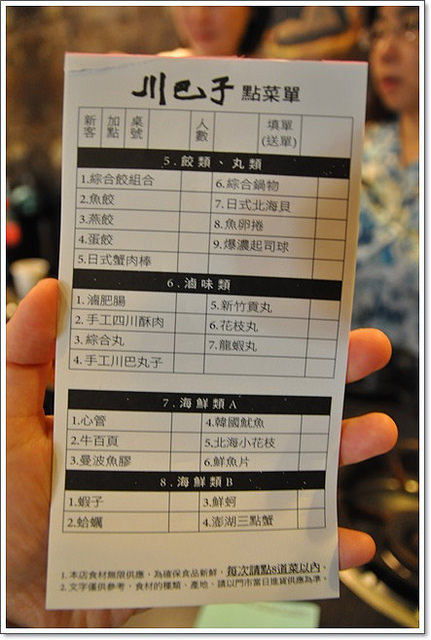 川巴子 點菜單
新客 加點 桌號 人數 填單(送單)
5.餃類、丸類
1.綜合餃組合 6.綜合鍋物
2.魚餃 7.日式北海貝
3.燕餃 8.魚卵捲
4.蛋餃 9.爆濃起司球
5.日式蟹肉棒
6.滷味類
1.滷肥腸 5.新竹貢丸
2.手工四川酥肉 6.花枝丸
3.綜合丸 7.龍蝦丸
4.手工川巴丸子
7.海鮮類A
1.心管 4.韓國魷魚
2.牛百頁 5.北海小花枝
3.曼波魚膠 6.鮮魚片
8.海鮮類B
1.蝦子 3.鮮蚵
2.蛤蠣 4.澎湖三點蟹
1.本店食材無限供應，為確保食品新鮮，每次請點8道菜以內。
2.文字僅供參考，食材的種類、產地、請以門市當日進貨供應為準。